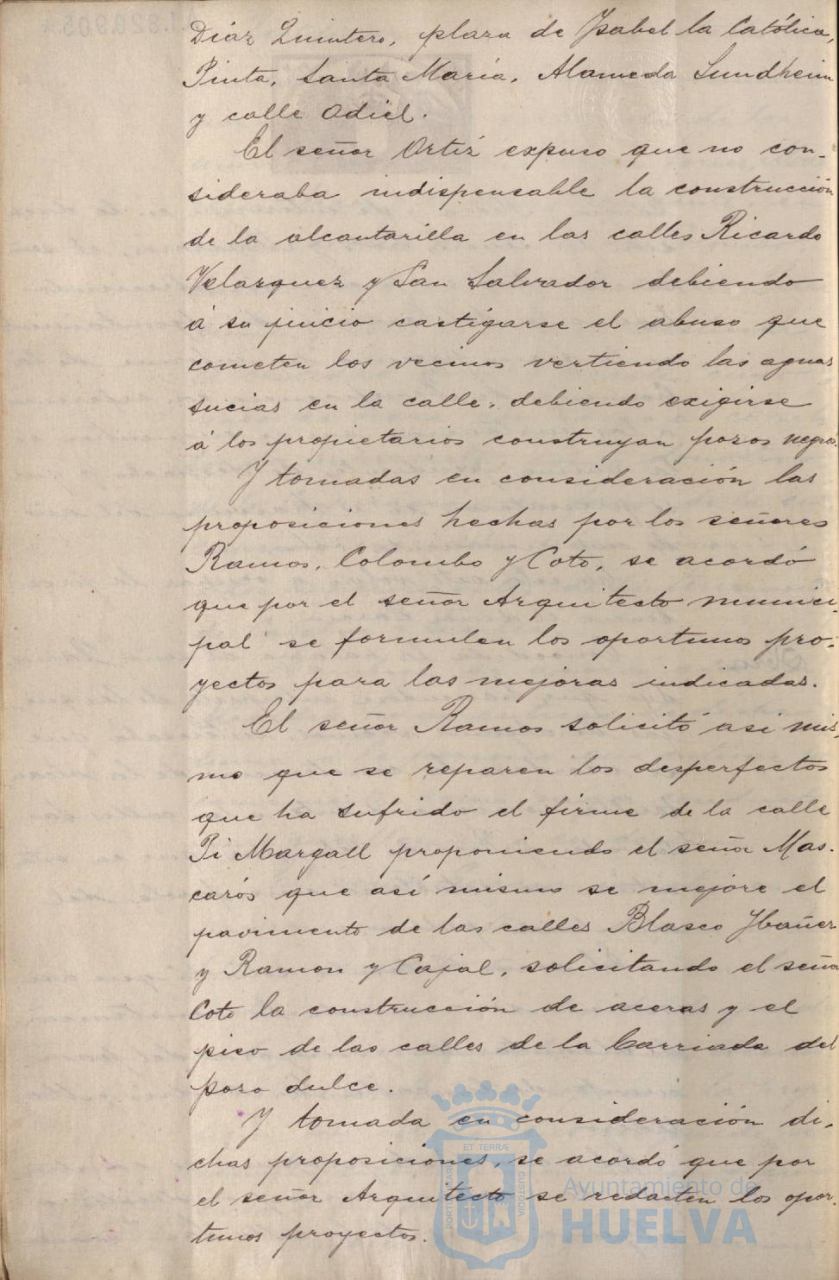 Díaz Quintero, plaza de Ysabel la Católica,
Pinta, Santa María, Alameda Sundheim
y calle Odiel.
El señor Ortiz expuso que no con-
sideraba indispensable la construcción
de la alcantarilla en las calles Ricardo
Velazquez y San Salvador debiendo
á su juicio castigarse el abuso que
cometen los vecinos vertiendo las aguas
sucias en la calle, debiendo exigirse
á los propietarios construyan pozos negros.
Y tomadas en consideración las
proposiciones hechas por los señores
Ramos, Colombo y Coto, se acordó
que por el señor Arquitecto munici-
pal se formulen los oportunos pro-
yectos para las mejoras indicadas.
El señor Ramos solicitó asi mis-
mo que se reparen los desperfectos
que ha sufrido el firme de la calle
Pi Margall proponiendo el señor Mas-
carós que así mismo se mejore el
pavimento de las calles Blasco Ybañez
y Ramon y Cajal, solicitando el señor
Coto la construcción de aceras y el
piso de las calles de la barriada del
pozo dulce.
Y tomada en consideración di-
chas proposiciones, se acordó que por
el señor Arquitecto se redacten los opor-
tunos proyectos.
Ayuntamiento de
HUELVA